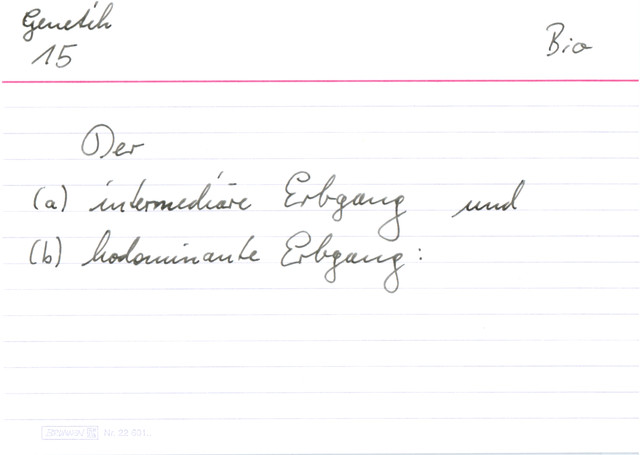 Genetik
15
Bio
Der
(a) intermediäre Erbgang und
(b) kodominante Erbgang:
Nr. 22 901..